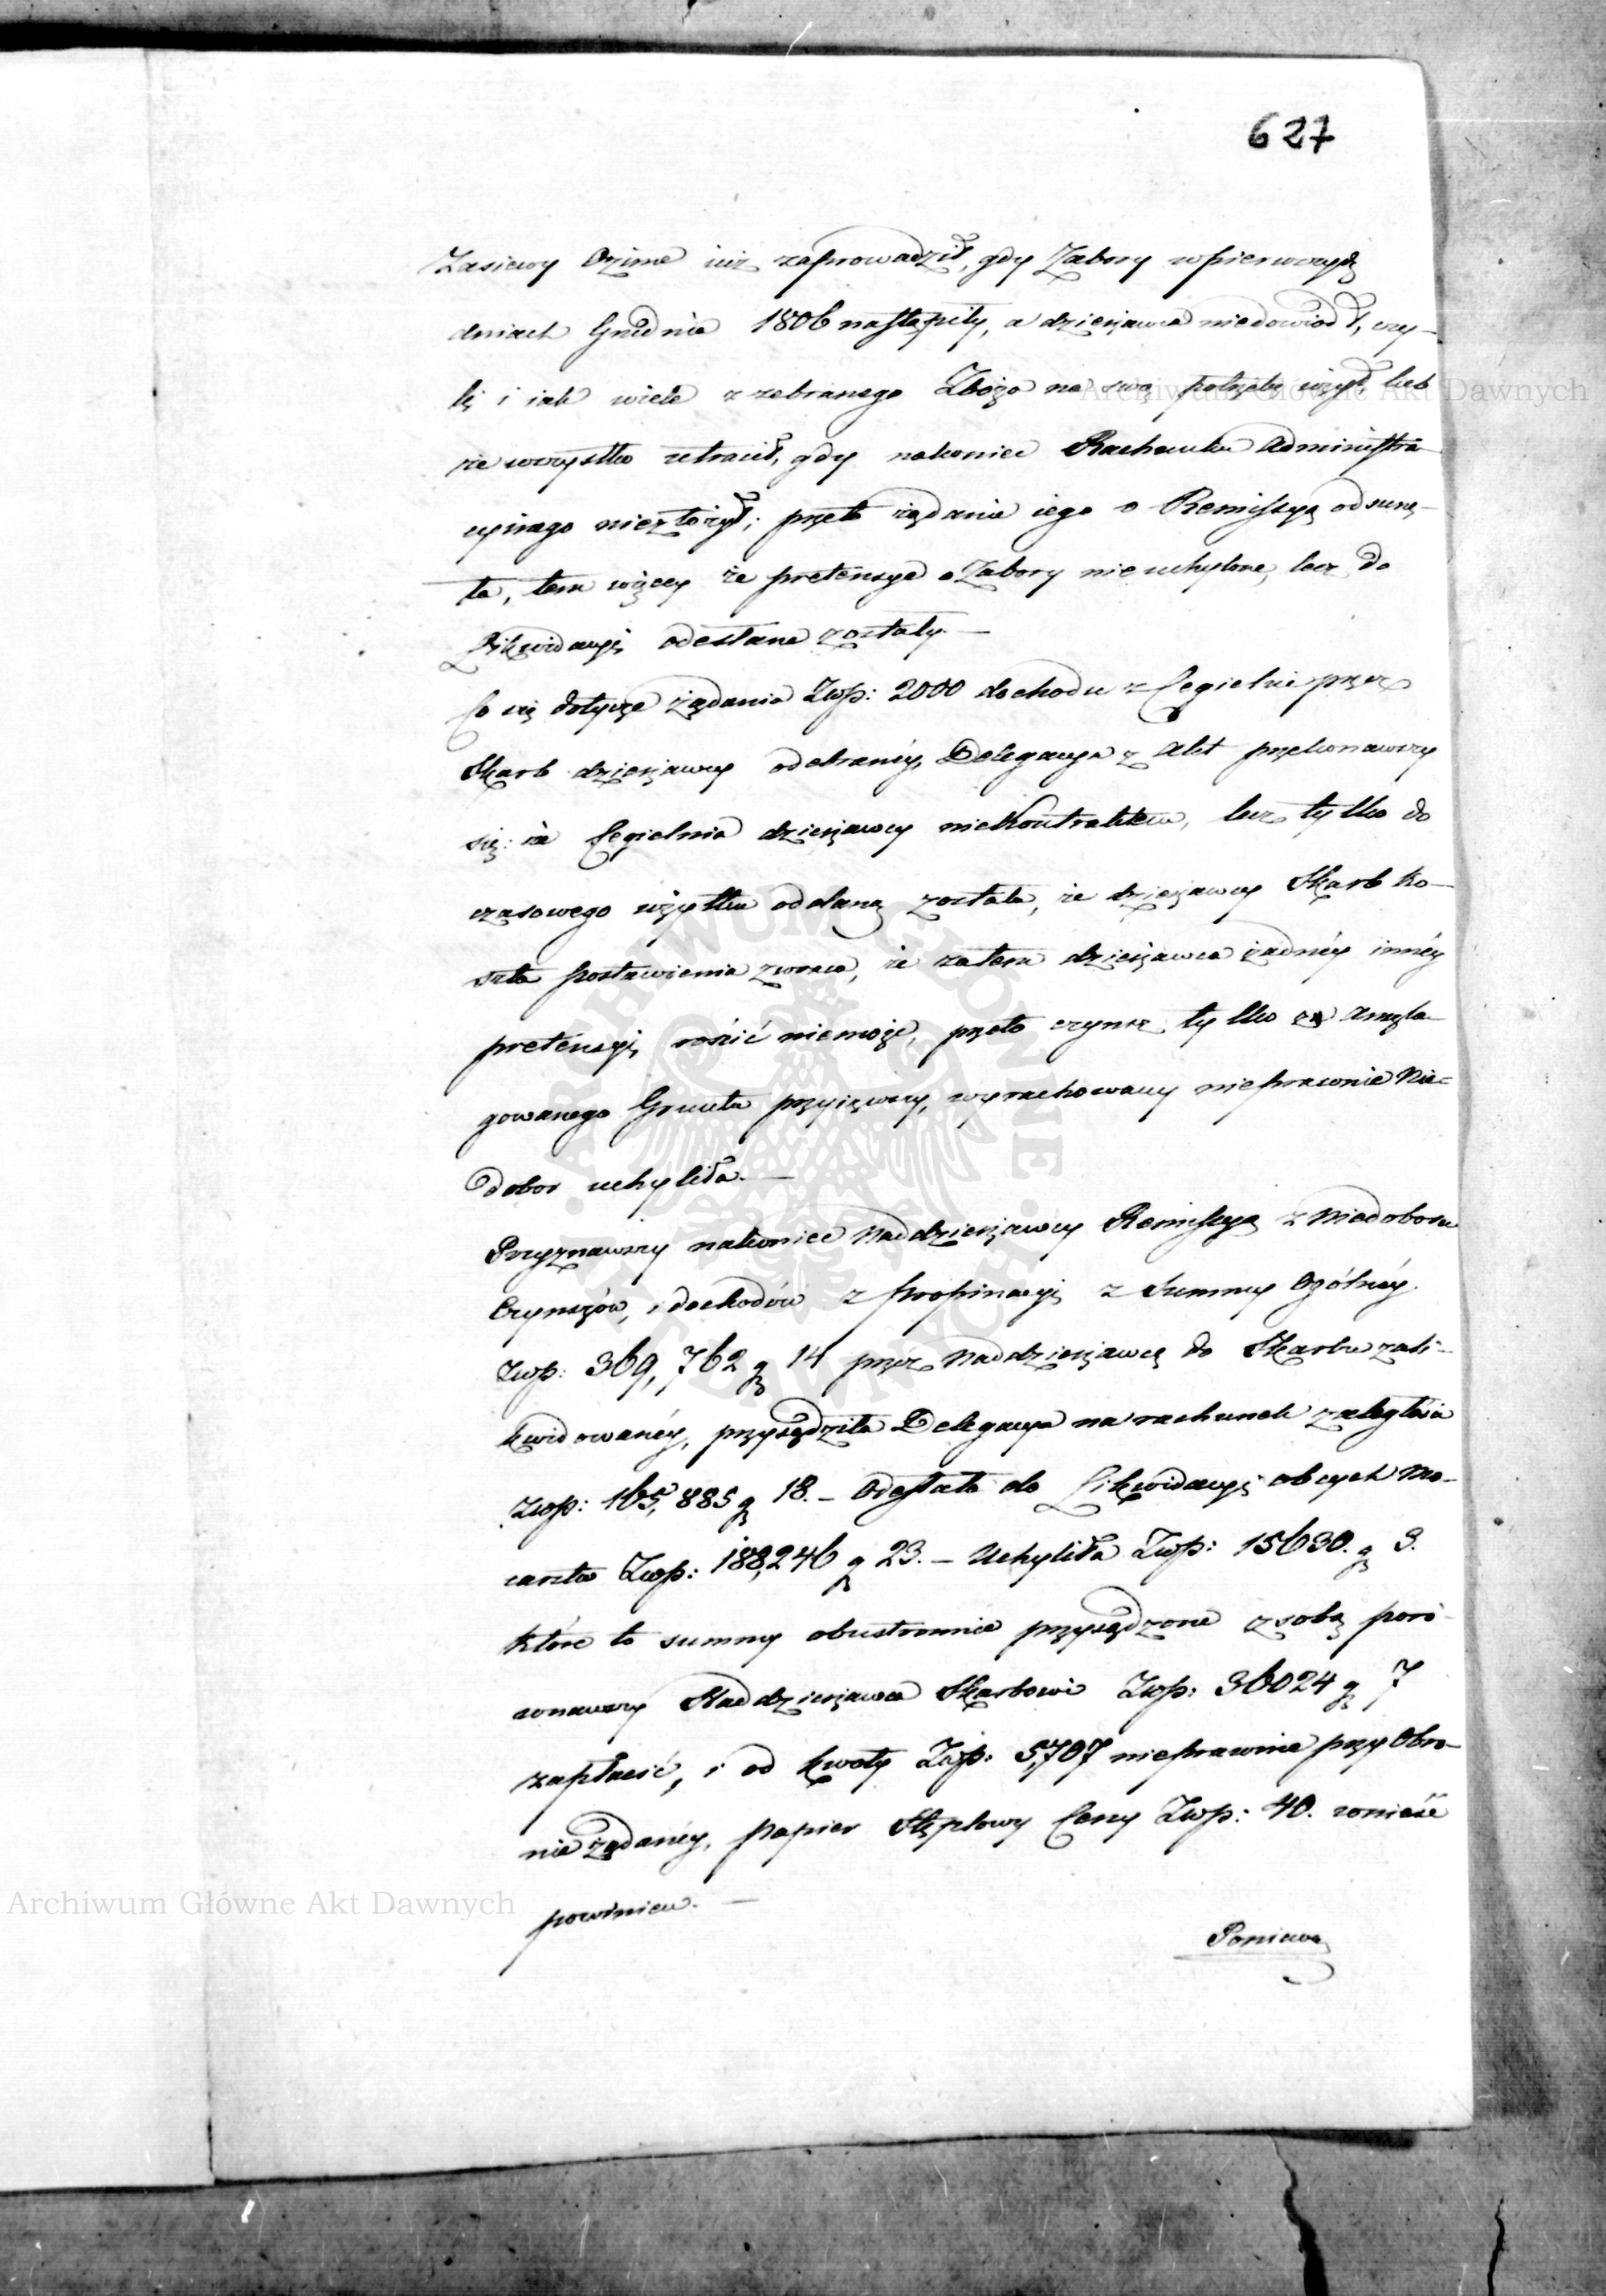 627
Zasiewy Ozime iuż zaprowadził, gdy Zabory wpierwszych
dniach Grudnia 1806 nastąpiły, a dzierżawca niedowiódł, czy-
li i iak wiele z zebranego Zboża na swą potrzebę użył, lub
że wszystko utracił, gdy nakoniec Rachunku Administra-
cyinego niezłożył; przeto żądanie iego o Remissyą odsunę-
ła, tem więcey że pretensye o Zabory nie uchylone, lecz do
Likwidacyi odesłane zostały. —
Co się dotycze żądania Złp: 2000 dochodu z Cegielni przez
Skarb dzierżawcy odebraney, Delegacya z Akt przekonawszy
się: że Cegielnia dzierżawcy nie Kontraktem, lecz tylko do
czasowego użytku oddaną została, że dzierżawcy Skarb ko-
szta postawienia zwraca, że zatem dzierżawca żadney inney
pretensyi rościć niemoże, przeto czynsz tylko za
gowanego Gruntu przyiąwszy, wyrachowany nieprawnie Nie-
dobor uchyliła. —
Przyznawszy nakoniec Naddzierżawcy Remissyą z Niedoboru
Czynszów, i dochodów z propinacyi z Summy Ogólney
Złp: 369,762 gr 14 przez Naddzierżawcę do Skarbu zali-
kwidowaney, przysądziła Delegacya na rachunek zaległości
Złp: 165,885 gr 18. – Odesłała do Likwidacyi obcych Mo-
carstw Złp: 188,246 gr 23. – Uchyliła Złp: 15630. gr 3.
które to summy obustronnie przysądzone z sobą poró-
wnawszy Naddzierżawca Skarbowi Złp: 36024 gr 7
zapłacić, i od kwoty Złp: 5,707 nieprawnie przy Obro-
nie żądaney, papier Stęplowy Ceny Złp: 40. wnieść
powinien. —
Ponieważ
Archiwum Główne Akt Dawnych
Archiwum Główne Akt Dawnych
ARCHIWUM GŁÓWNE AKT DAWNYCH